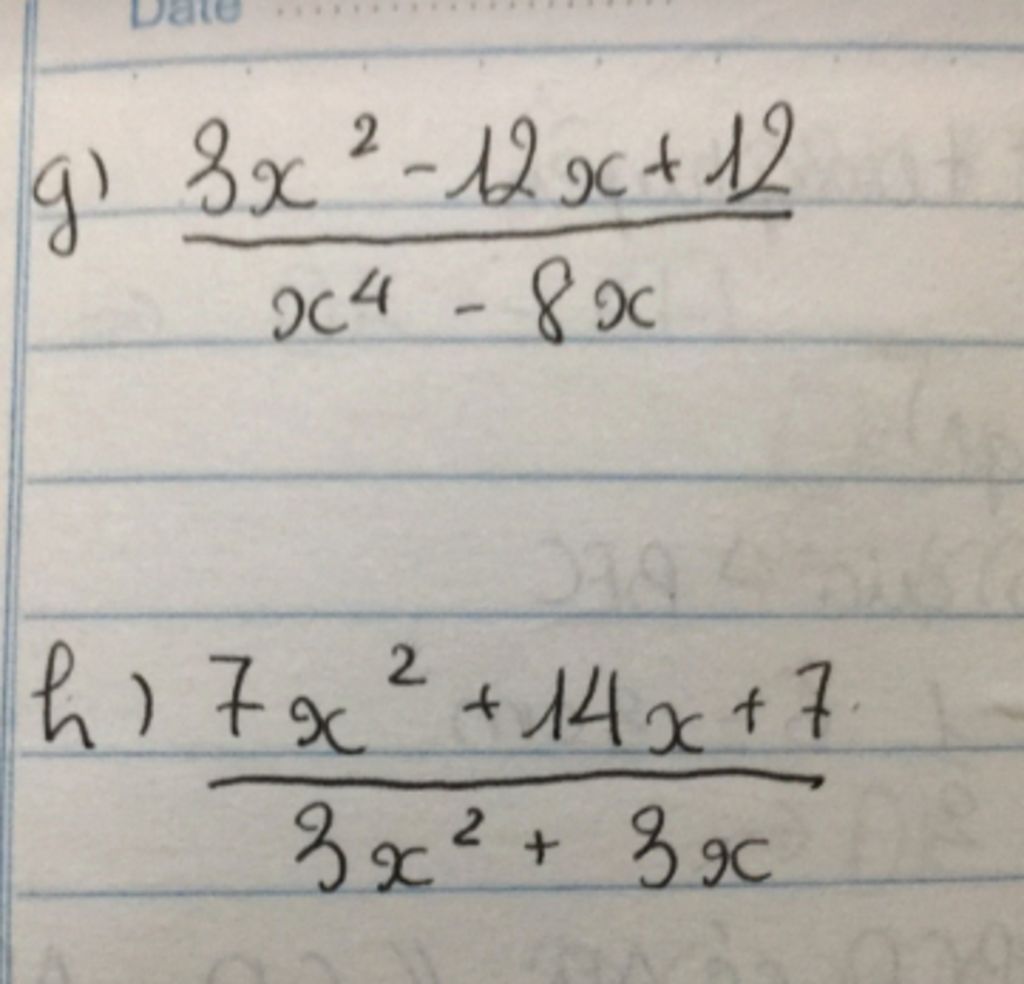 Date
g) 3x² - 12x + 12
x⁴ - 8x
h) 7x² + 14x + 7
3x² + 3x